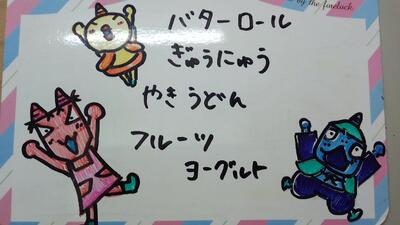 by the finelock
バターロール
ぎゅうにゅう
やきうどん
フルーツ
ヨーグルト